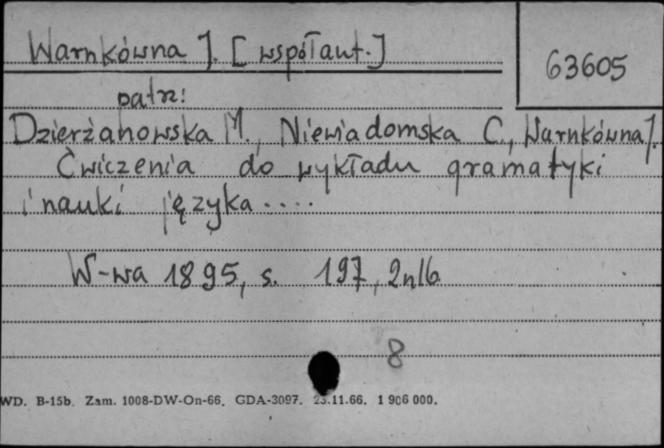 Warnkówna J. [współaut.]
63605
patrz:
Dzierżanowska M., Niewiadomska C., Warnkówna J.
Ćwiczenia do wykładu gramatyki
i nauki języka ....
W-wa 1895, s. 197, 2nlb.
8
WD. B-15b. Zam. 1008-DW-On-66. GDA-3097. 23.11.66. 1 906 000.